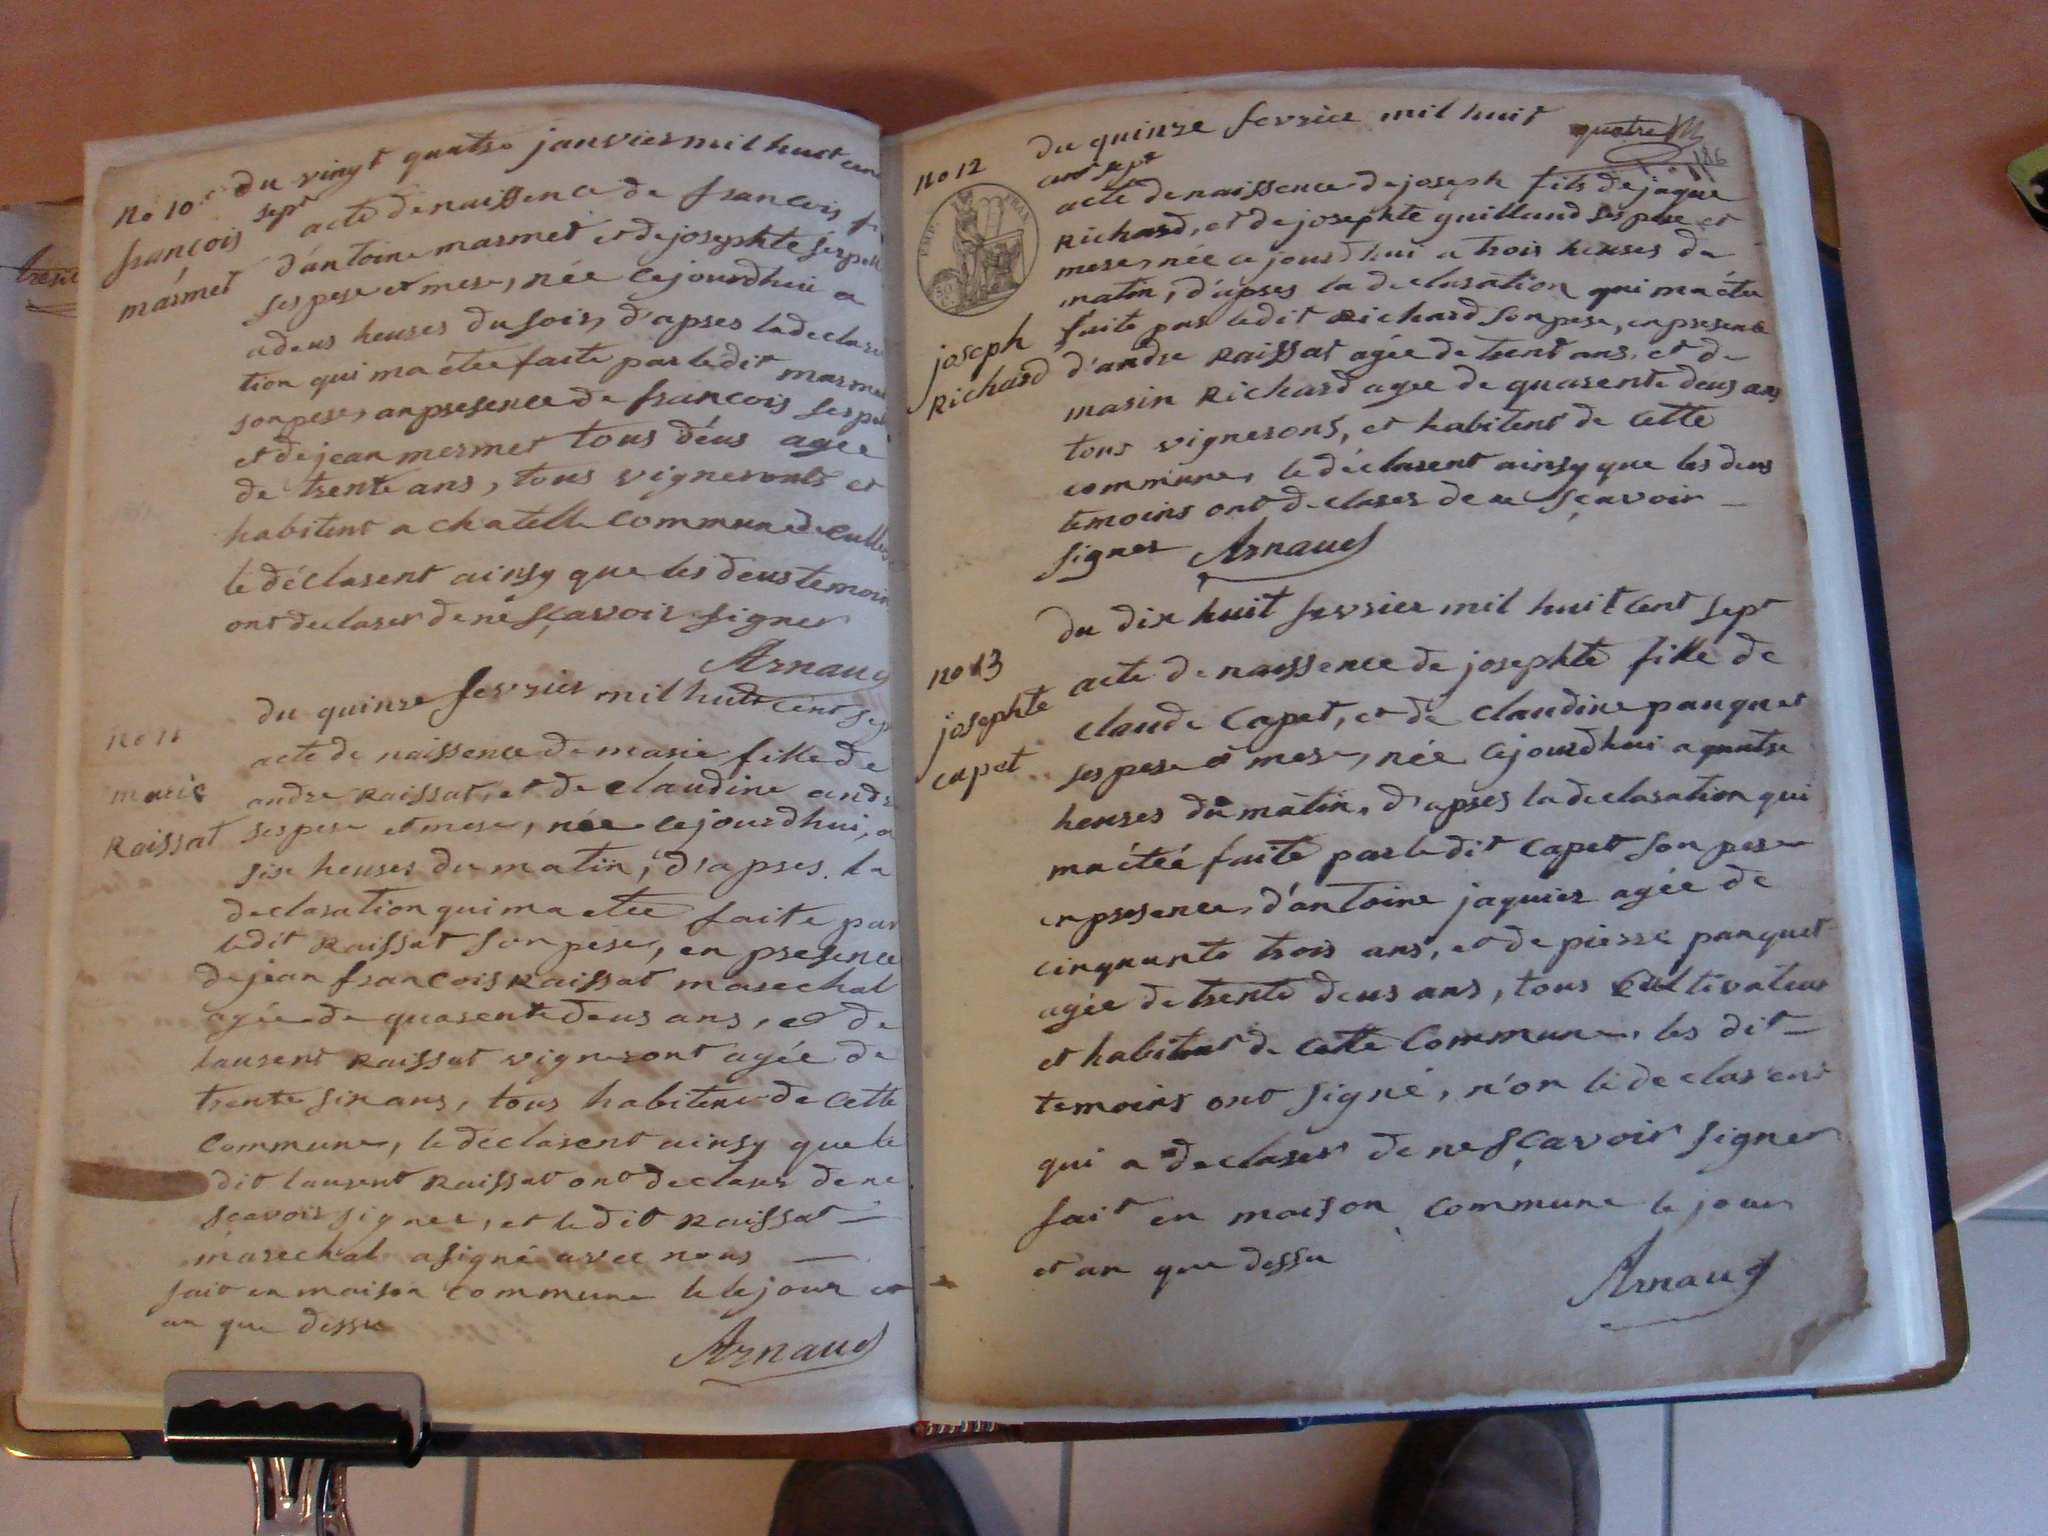 No 10
françois
marmet
du vingt quatre janvier mil huit cent
sept
acte de naissence de françois
d'antoine marmet et de josephte
ses pere et mere, née cejourdhui a
a deus heures du soir, d'apres la declara
tion qui ma étée faite par ledit marmet
son pere, an presence de françois
et de jean mermet tous déus agée
de trente ans, tous vigneronts et
habitent a chatelle commune de
le déclarent ainsy que les deus temoin
ont declarer de ne sçavoir signer
Arnaud
no 11
marie
Raissat
du quinze fevrier mil huit cent sept
acte de naissence de marie fille de
andre Raissat, et de claudine andr
ses pere et mere, née cejourdhui, a
six heures du matin, d'apres la
declaration qui ma etée faite par
ledit Raissat son pere, en presence
de jean françois Raissat marechal
agée de quarente deus ans, et de
laurent Raissat vigneront agée de
trente six ans, tous habitent de cette
commune, le declarent ainsy que le
dit laurent Raissat ont declarer de ne
sçavoir signer, et le dit Raissat —
marechal a signé avec nous —
fait en maison commune le le jour et
an que dessu
Arnaud
quatre
186
no 12
EMP. FRAN.
joseph
Richard
du quinze fevrier mil huit
cent sept
acte de naissence de joseph fils de jaque
Richard, et de josephte guilland ses pere et
mere, née cejourdhui a trois heures de
matin, d'apres la declaration qui ma étée
faite par ledit Richard son pere, en presence
d'andre Raissat agée de trent ans, et de
marin Richard agee de quarente deus ans
tous vignerons, et habitent de cette
commune, le déclarent ainsy que les deus
temoins ont declarer de ne sçavoir —
signer Arnaud
no 13
josephte
capet
du dix huit fevrier mil huit cent sept
acte de naissence de josephte fille de
claude capet, et de claudine panquet
ses pere et mere, née cejourdhui a quatre
heures du matin, d'apres la declaration qui
ma étéé faite par le dit capet son pere
en presence, d'antoine jaquier agée de
cinquante trois ans, et de pierre panquet
agée de trente deus ans, tous cultivateur
et habitent de cette commune, les dit —
temoins ont signé, n'on le declarent
qui a declarer de ne sçavoir signer
fait en maison commune le jour
et an que dessu
Arnaud